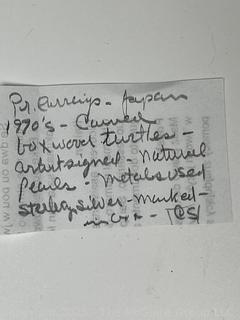 Pr. Earrings - Japan
1970's - Carved
boxwood turtles -
artist signed - natural
pearls - metals used
sterling silver - marked -